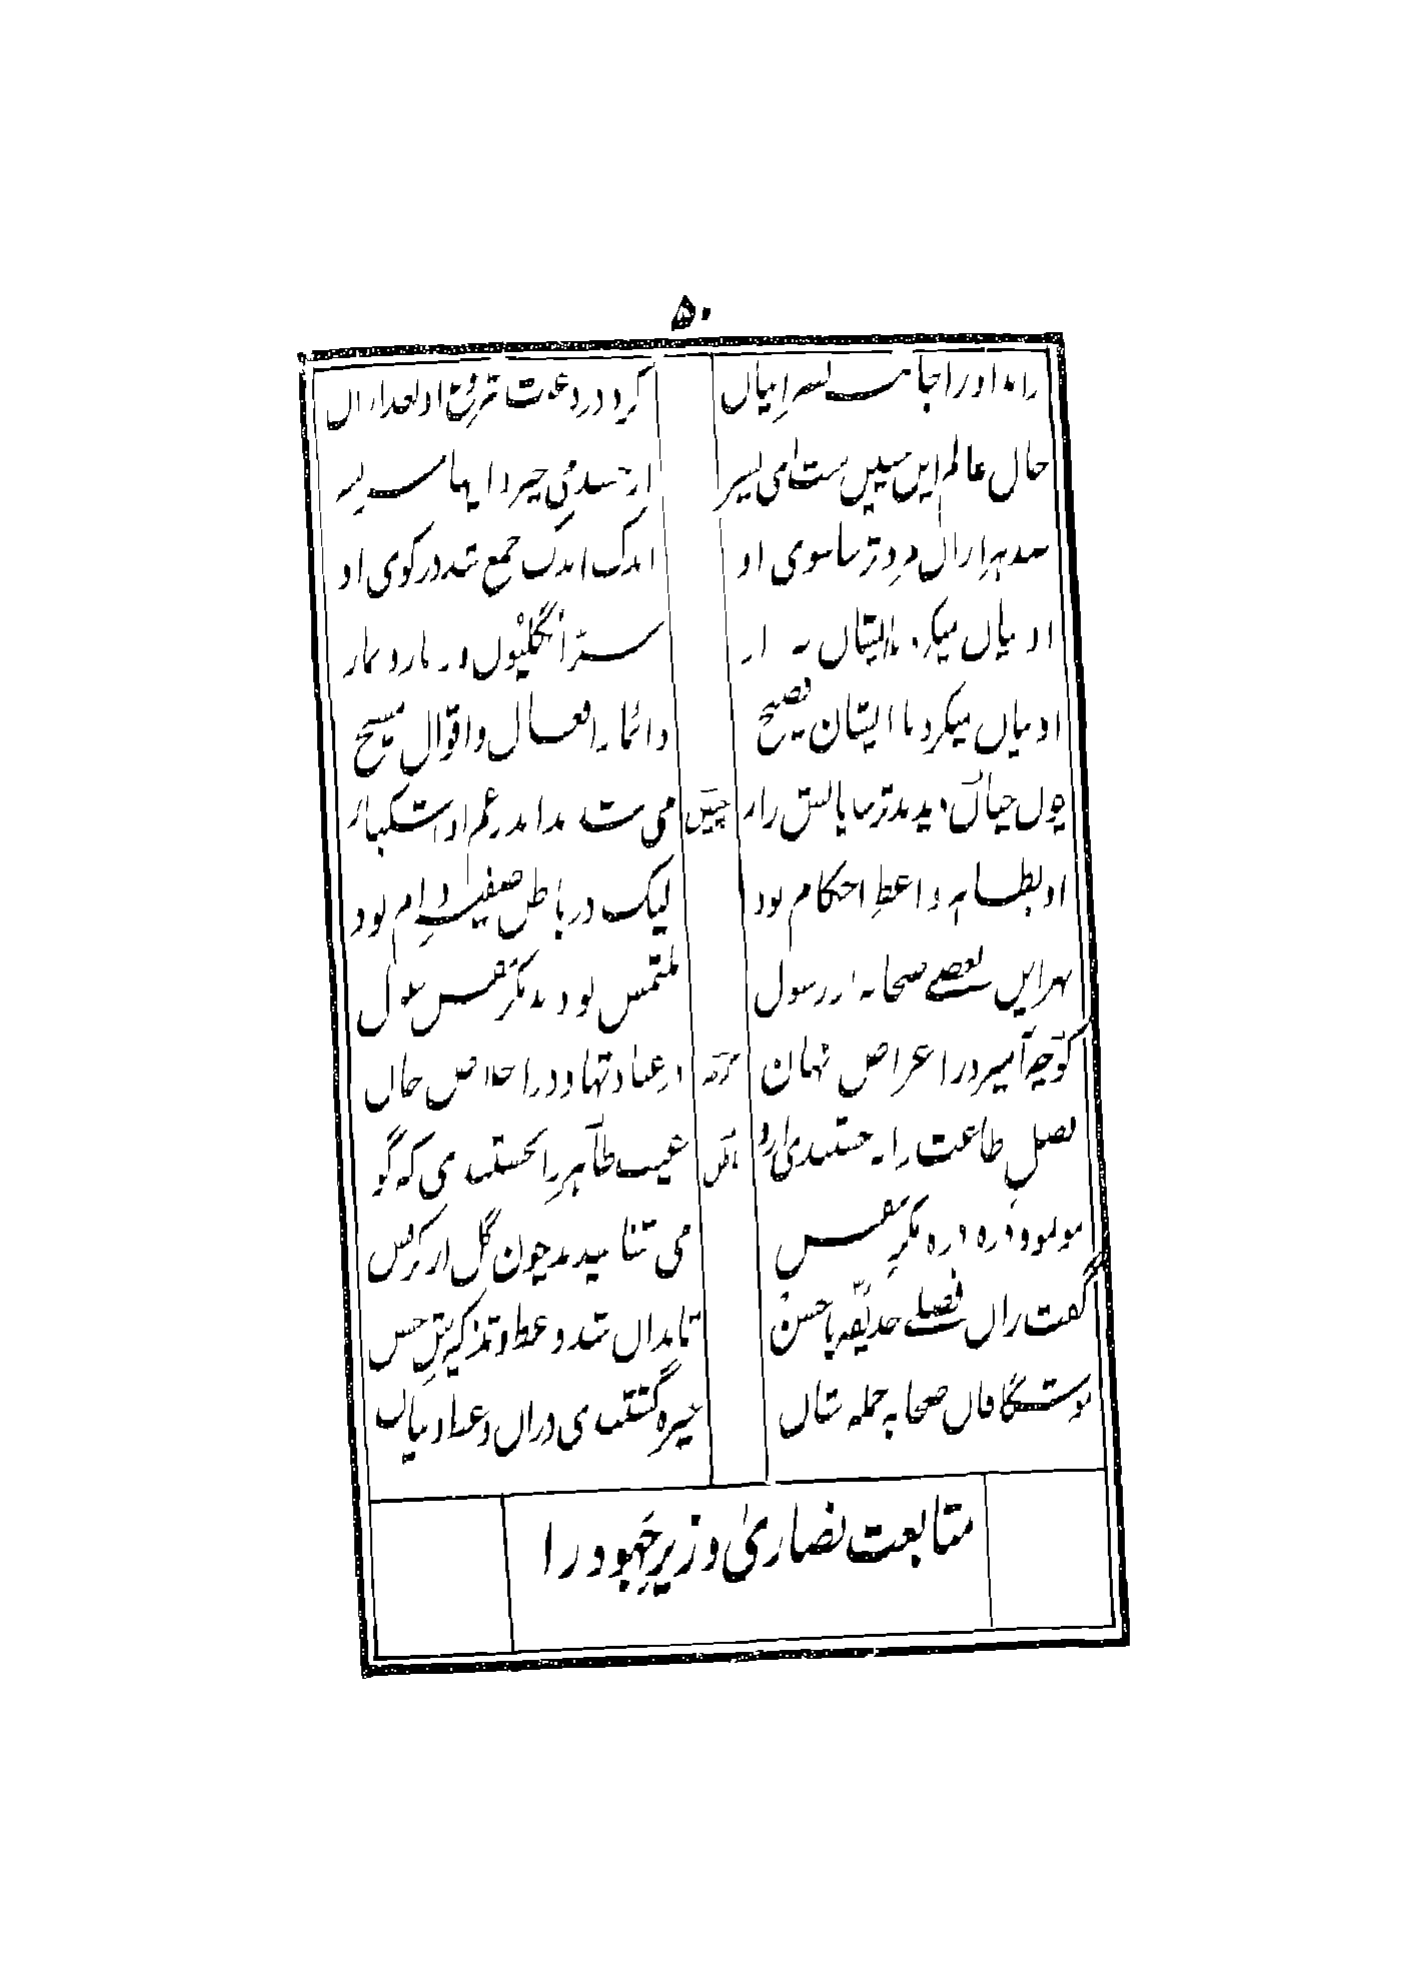 ۵۰
راند او را جانب نصرانیان کرد در دعوت شروع او بعد ازان
حال عالم این چنین ست ای پسر از حسد می خیزد اینها سر بسر
صد هزاران مرد ترسا سوی او اندک اندک جمع شد در کوی او
او بیان میکرد با ایشان براز سر انگلیون و زنار و نماز
او بیان میکرد با ایشان فصیح دائما ز افعال و اقوال مسیح
چون چنان دیدند ترسایانش زار چنین می شدند اندر غم او اشکبار
او بظاهر واعظ احکام بود لیک در باطن صفیر و دام بود
بهر این بعضے صحابه از رسول ملتمس بودند مکر نفس غول
کو چه آمیزد ز اغراض نهان در عبادتها و در اخلاص جان
فضل طاعت را نجستندی ازو عیب ظاهر را بجستندی که گو
مو بمو و ذره ذره مکر نفس می شناسیدند چون گل از کرفس
گفت زان فصلے حذیفه با حسن تا بدان شد وعظ و تذکیرش حسن
موشگافان صحابه جمله شان خیره گشتندی در آن وعظ و بیان
متابعت نصاریٰ وزیرِ جهود را